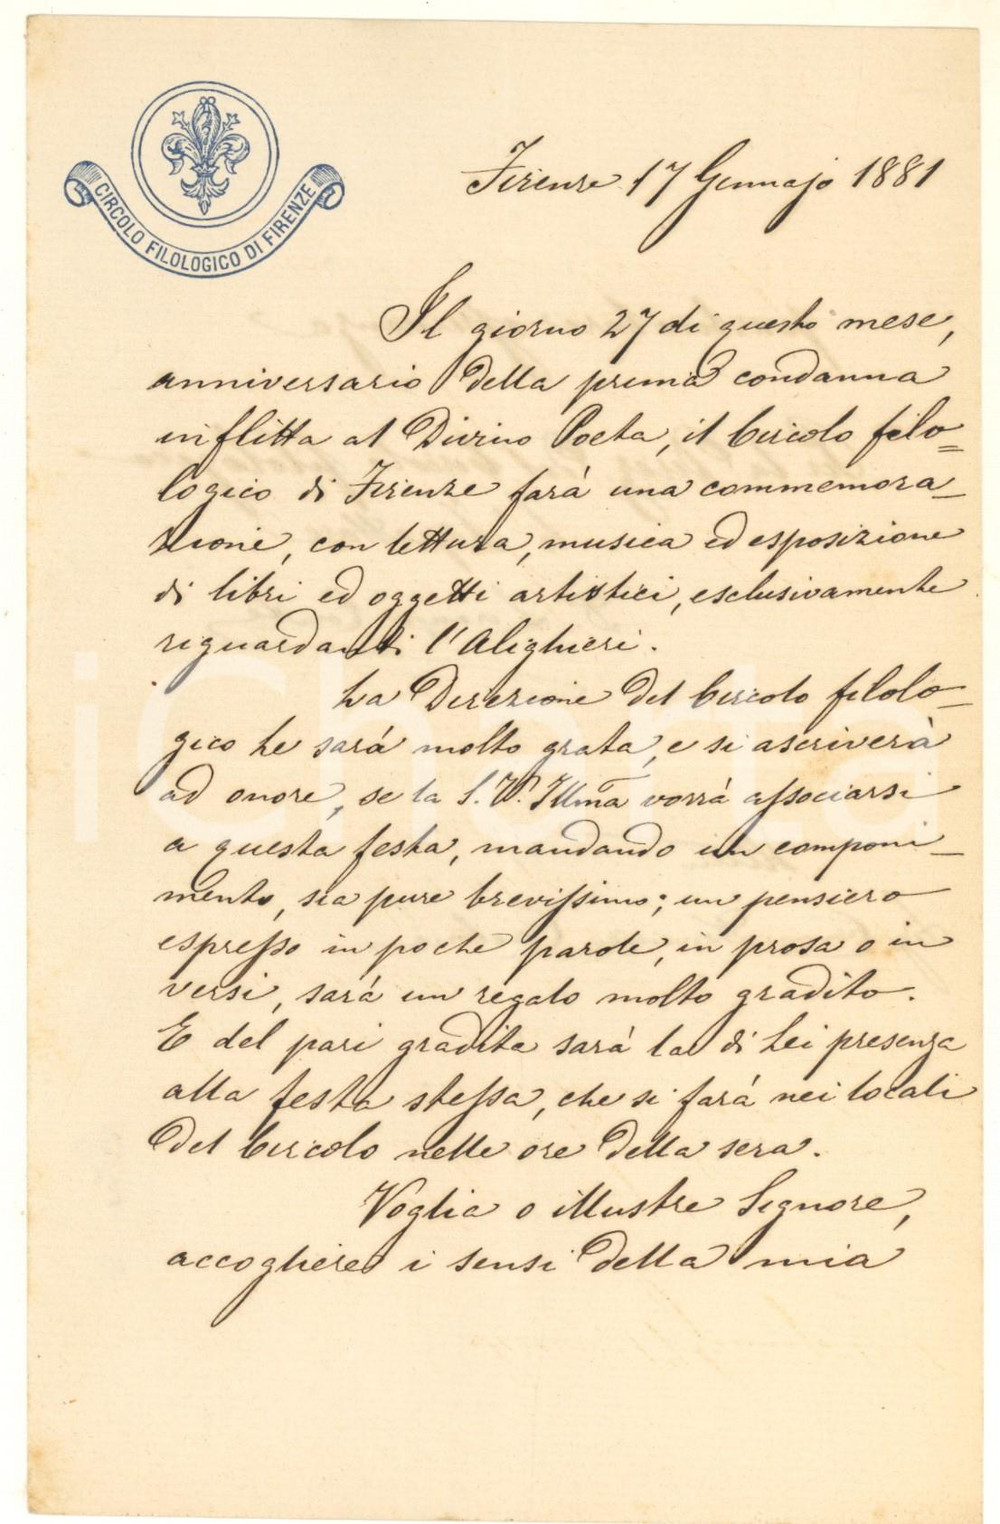 CIRCOLO FILOLOGICO DI FIRENZE
Firenze 17 Gennajo 1881
Il giorno 27 di questo mese,
anniversario della prima condanna
inflitta al Divino Poeta, il Circolo filo=
logico di Firenze farà una commemora_
zione, con lettura, musica ed esposizione
di libri ed oggetti artistici, esclusivamente
riguardanti l'Alighieri.
La Direzione del Circolo filolo_
gico Le sarà molto grata, e si ascriverà
ad onore, se la S. V. Illma vorrà associarsi
a questa festa, mandando un componi_
mento, sia pure brevissimo; un pensiero
espresso in poche parole, in prosa o in
versi, sarà un regalo molto gradito.
E del pari gradita sarà la di Lei presenza
alla festa stessa, che si farà nei locali
del Circolo nelle ore della sera.
Voglia o illustre Signore,
accogliere i sensi della mia